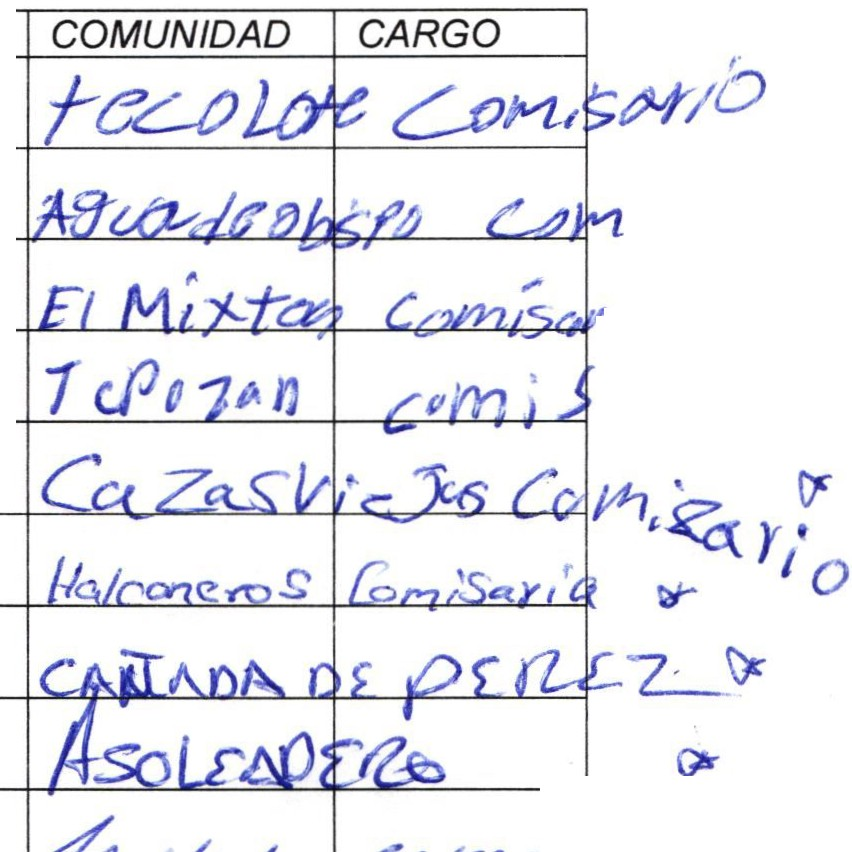 COMUNIDAD CARGO
tecolote Comisario
Aguadeobispo com
El Mixton comisar
Tepozan comis
CazasViejas Comizario
Halconeros Comisaria
CAÑADA DE PEREZ
ASOLEADERO